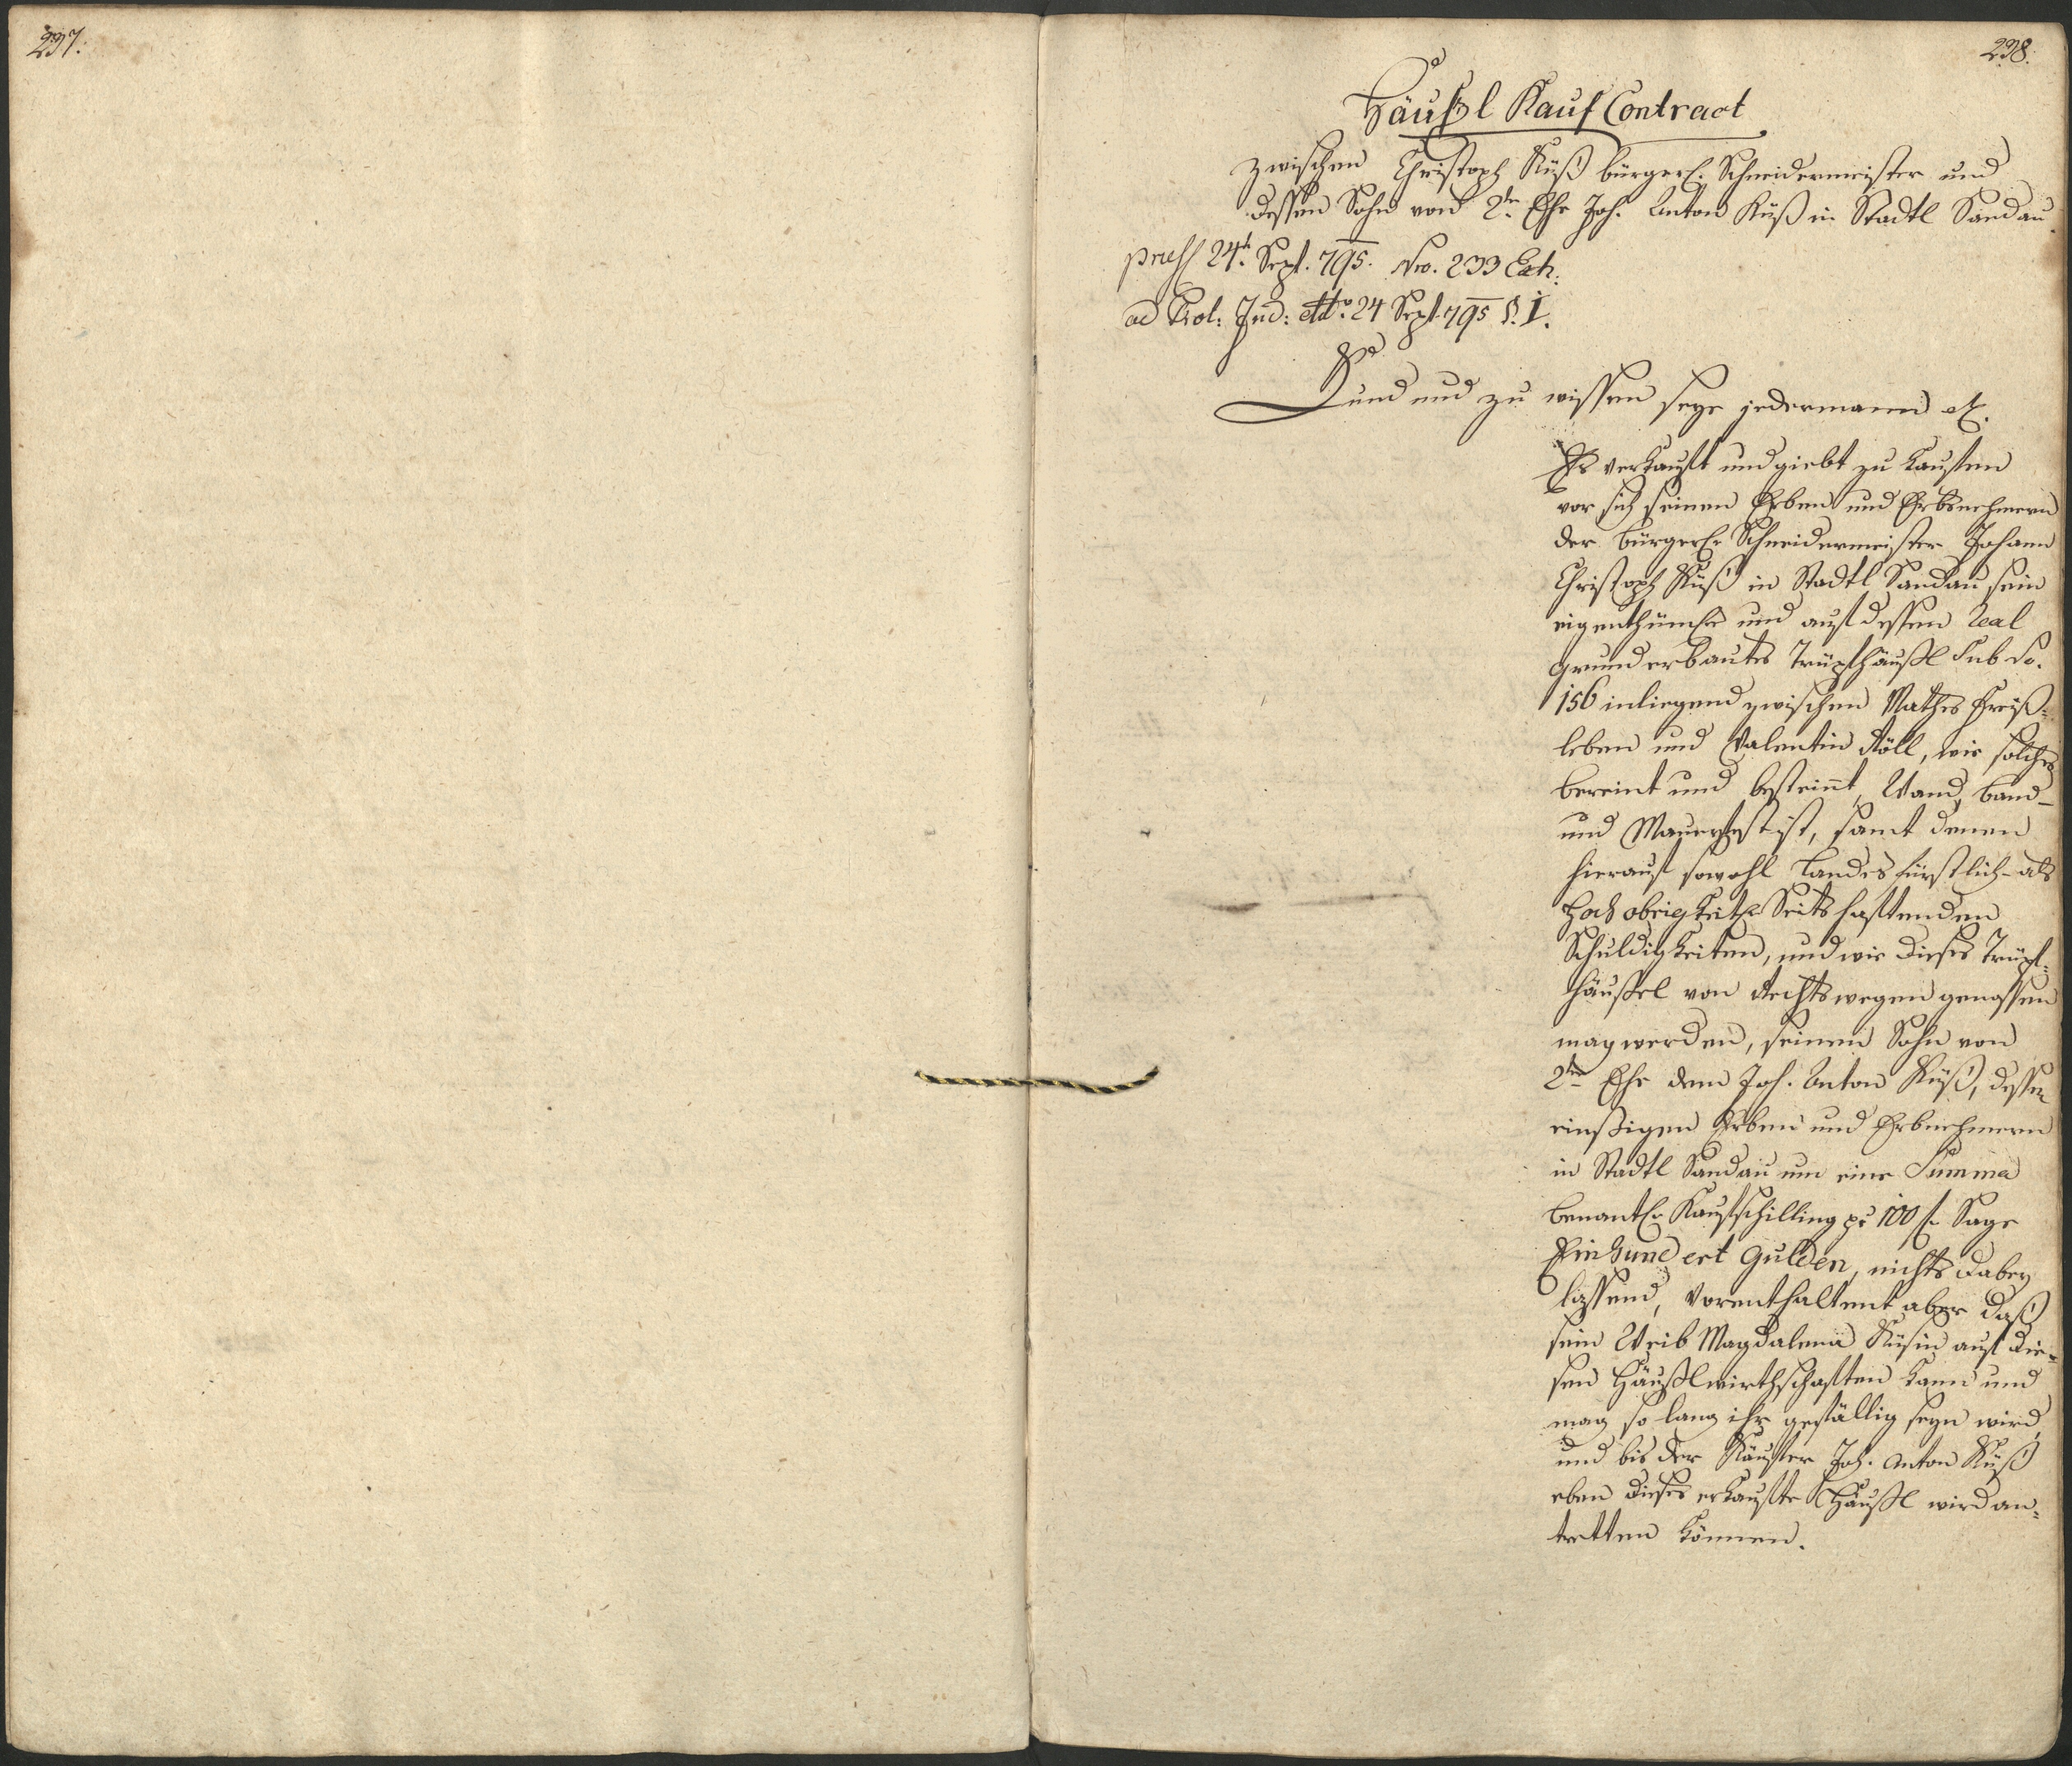 237.
238.
Häußl Kauf Contract
zwischen Christoph Küß bürgerl. Schneidermeister und
dessen Sohn von 2ter Ehe Joh. Anton Küß in Stadtl Sandau.
24t Sept. 795. No. 233 Exh.
ad Prot: Jud: ddto. 24 Sept. 795 §. 1.
Kund und zu wissen seye jedermann etc.
Es verkauft und giebt zu kaufen
vor sich seinen Erben und Erbsnehmern
der bürgerl. Schneidermeister Johann
Christoph Küß in Stadtl Sandau sein
eigenthüml. und auf dessen Real
grund erbautes Trüpfhäußl sub No.
156 inliegend zwischen Mathes
leben und Valentin Röll, wie solches
bereint und besteint, Wand, band-
und Mauerfest ist, samt denen
hierauf sowohl Landesfürstlich- als
Hochobrigkeitl. Seits haftenden
Schuldigkeiten, und wie dieses Trüpf-
häußel von Rechtswegen genossen
mag werden, seinem Sohn von
2ter Ehe dem Joh. Anton Küß, dessen
einstigen Erben und Erbnehmern
in Stadtl Sandau um eine Summa
benantl. Kaufschilling pr 100 f. Sage
Einhundert Gulden, nichts dabey
lassend, Vorenthaltent aber daß
sein Weib Magdalena Küsin auf die-
sen Häußl wirthschaften kann und
mag so lang ihr gefällig seyn wird,
und bis der Käufer Joh. Anton Küß
eben dieses erkaufte Häußl wird an-
tretten können.